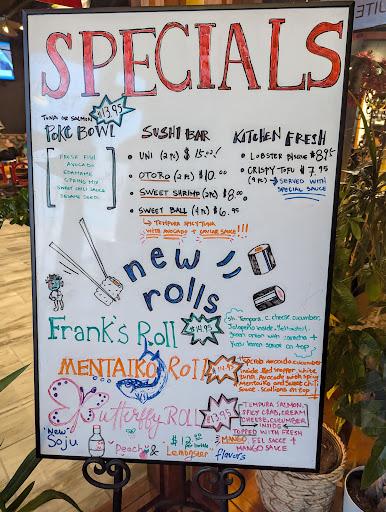 SPECIALS
TUNA OR SALMON
$13.95
POKE BOWL
FRESH FISH
AVOCADO
EDAMAME
SPRING MIX
SWEET CHILI SAUCE
SESAME SEEDS
SUSHI BAR
• UNI (2 PC) $15.00!
• OTORO (2 PC) $10.00
• SWEET SHRIMP (2 PC) $8.00
• SWEET BALL (4 PC) $6.95
↳ TEMPURA SPICY TUNA
WITH AVOCADO + CAVIAR SAUCE!!!
KITCHEN FRESH
• LOBSTER BISQUE $8.95
• CRISPY TOFU $7.95
(9 PC) → SERVED WITH
SPECIAL SAUCE
new
rolls
Frank's Roll
$14.95
Sh. Tempura, c. cheese, cucumber,
Jalapeño inside. Yellowtail,
onion with sriracha +
Yuzu lemon sauce on top
MENTAIKO ROLL
$14.95
Avocado cucumber
inside. Red snapper, white
tuna, Avocado with spicy
Mentaiko and sweet chili
sauce - scallions on top
Butterfly ROLL
$13.95
TEMPURA SALMON,
SPICY CRAB, CREAM
CHEESE, CUCUMBER
INSIDE
TOPPED WITH FRESH
MANGO EEL SAUCE +
MANGO SAUCE
"New"
Soju
"Peach" &
"Lemonster"
$12.95
per bottle
flavors